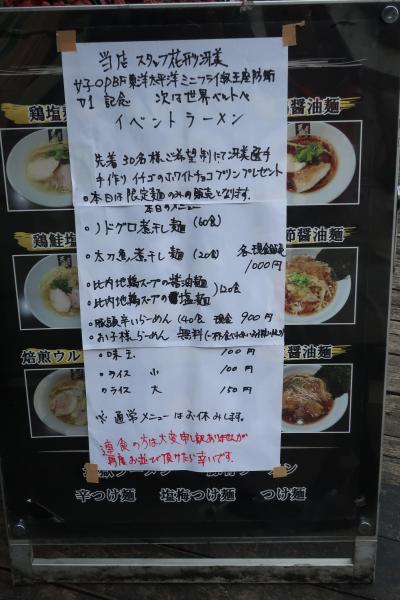 当店 スタッフ花形冴美
女子OPBF東洋太平洋ミニフライ級王座防衛
V1 記念 次は世界ベルトへ
イベントラーメン
先着30名様、ご希望制に冴美選手
手作りイチゴのホワイトチョコプリンプレゼント
○本日は限定麺のみの販売となります。
本日のメニュー
○ノドグロ煮干し麺 (60食)
○太刀魚煮干し麺 (20食) 各現金
1000円
○比内地鶏スープの醤油麺
○比内地鶏スープの塩麺 120食
○豚頭辛いらーめん (40食 現金 900円
○お子様らーめん 無料
○味玉 100円
○ライス 小 100円
○ライス 大 150円
※通常メニューはお休みします。
連食の方は大変申し訳ありませんが
再度お並び頂けたら幸いです。
鶏塩
醤油麺
鶏鮭塩
節醤油麺
焙煎ウル
醤油麺
辛つけ麺 塩梅つけ麺 つけ麺